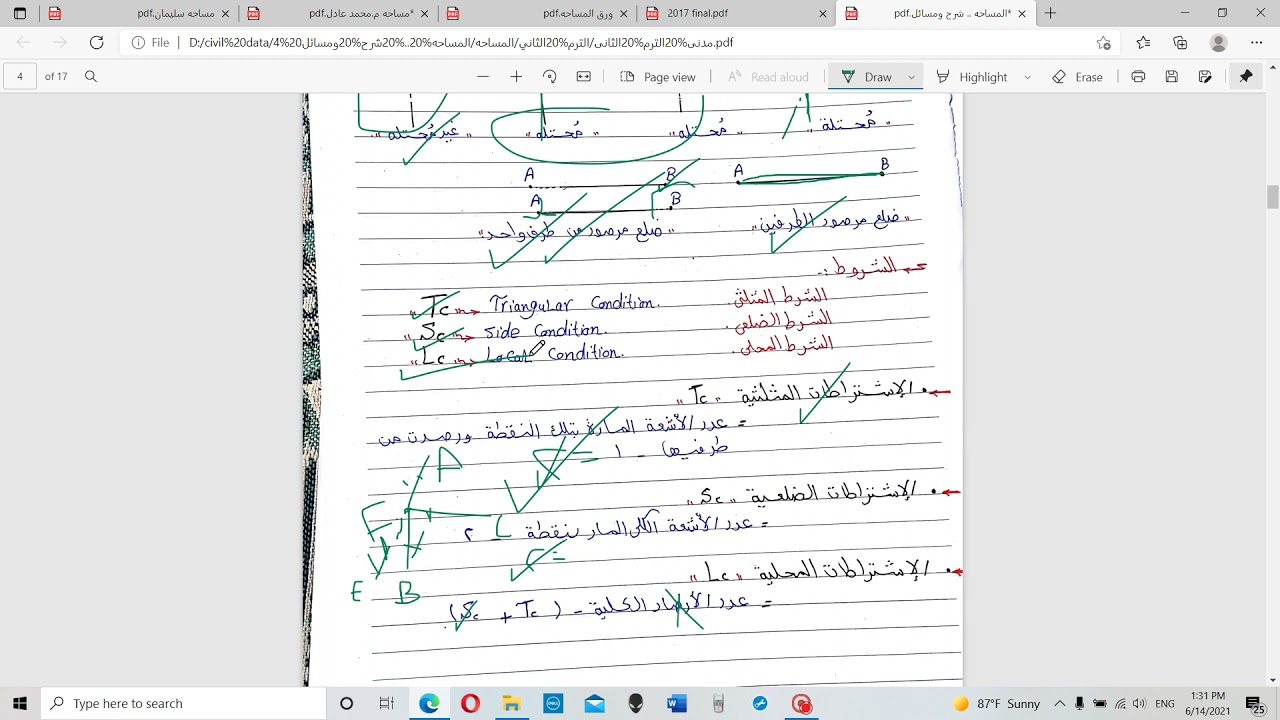 مساحه سليمان.pdf
مساحه م.محمد عادل.pdf*
ورق المساحه.pdf
2017 final.pdf
المساحه .. شرح ومسائل.pdf*
File
D:/civil%20data/4%20مدنى%20الترم%20الثانى/الترم%20الثاني/المساحه/المساحه%20..%20شرح%20ومسائل.pdf
4 of 17
Page view
Read aloud
Draw
Highlight
Erase
"مُحتلة" "مُحتله" "مُحتله" "غير مُحتله"
A B A B
A B
"ضلع مرصود الطرفين" "ضلع مرصود من طرف واحد"
الشروط :-
"Tc" => Triangular Condition. الشرط المثلثى.
"Sc" => Side Condition. الشرط الضلعى.
"Lc" => Local Condition. الشرط المحلى.
الإشتراطات المثلثية "Tc"
= عدد الأشعة المارة بتلك النقطة ورصدت من
طرفيها - ١
A
الإشتراطات الضلعية "Sc"
= عدد الأشعة الكلى المار بنقطة - ٢
الإشتراطات المحلية "Lc"
E B
= عدد الأرصاد الكلية - (Sc + Tc)
Type here to search
87°F Sunny
1:31 PM
6/14/2021
25